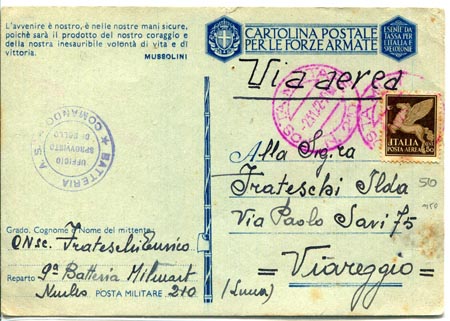 L'avvenire è nostro, è nelle nostre mani sicure,
poichè sarà il prodotto del nostro coraggio e
della nostra inesauribile volontà di vita e di
vittoria.
MUSSOLINI
CARTOLINA POSTALE
PER LE FORZE ARMATE
ESENTE DA
TASSA PER
L'ITALIA E
Via aerea
POSTA
ITALIA
POSTA AEREA
BATTERIA
COMANDO
UFFICIO
SPROVVISTO
DI BOLLO
Alla Sig.ra
Frateschi Ilda
Via Paolo Savi 75
= Viareggio =
(Lucca)
510
Grado, Cognome e Nome del mittente
Frateschi Enrico
Reparto 9ª Batteria Milmart
Nucleo POSTA MILITARE 210